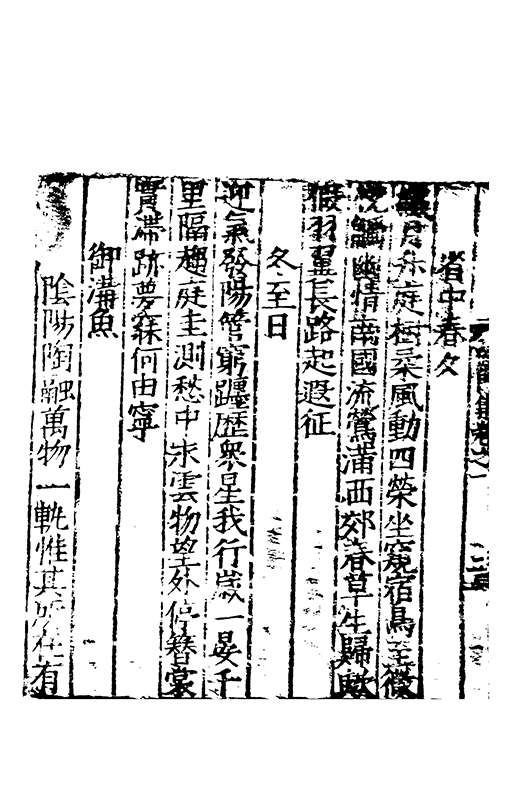 集卷之一
省中春夕
庭樹柔風動四榮坐窺宿鳥至微
幽情南國流鶯滿西郊春草生歸歟
假羽翼長路起遐征
冬至日
迎氣發陽管窮躔歷衆星我行歲一晏千
里隔趨庭圭測愁中永雲物望外停簪裳
實滯跡夢寐何由寧
御溝魚
陰陽陶融萬物一軌惟其所在有